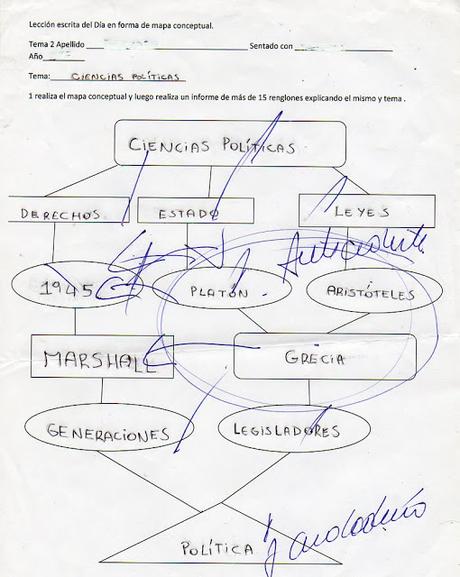 Lección escrita del Día en forma de mapa conceptual.
Tema 2 Apellido Sentado con
Año
Tema: CIENCIAS POLÍTICAS
1 realiza el mapa conceptual y luego realiza un informe de más de 15 renglones explicando el mismo y tema .
CIENCIAS POLÍTICAS
DERECHOS ESTADO LEYES
1945 PLATÓN ARISTÓTELES
MARSHALL GRECIA
GENERACIONES LEGISLADORES
POLÍTICA